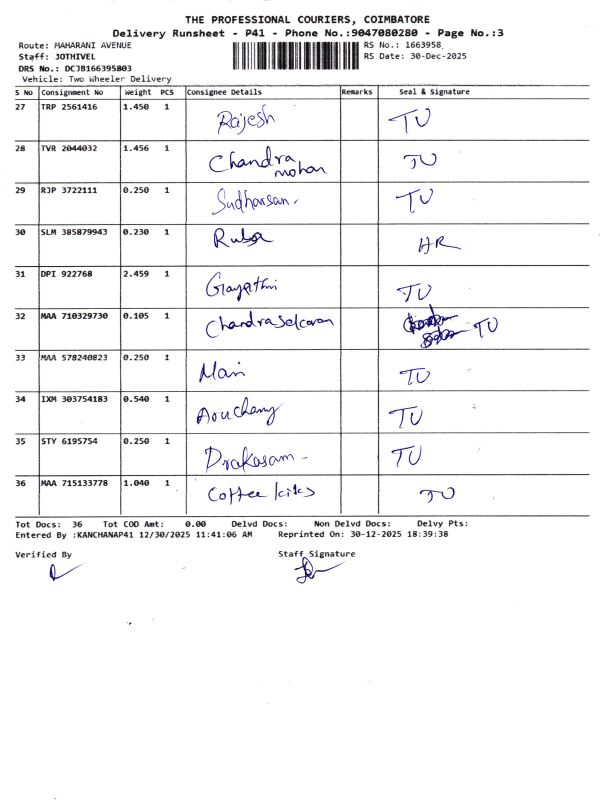 THE PROFESSIONAL COURIERS, COIMBATORE
Delivery Runsheet - P41 - Phone No.:9047080280 - Page No.:3
Route: MAHARANI AVENUE RS No.: 1663958
Staff: JOTHIVEL RS Date: 30-Dec-2025
DRS No.: DCJB166395803
Vehicle: Two Wheeler Delivery
S No Consignment No Weight PCS Consignee Details Remarks Seal & Signature
27 TRP 2561416 1.450 1 Rajesh TU
28 TVR 2044032 1.456 1 Chandra mohan TU
29 RJP 3722111 0.250 1 Sudharsan. TU
30 SLM 385879943 0.230 1 Ruba HR
31 DPI 922768 2.459 1 Gayathri TU
32 MAA 710329730 0.105 1 Chandrasekaran TU
33 MAA 578240823 0.250 1 Mani TU
34 IXM 303754183 0.540 1 TU
35 STY 6195754 0.250 1 Prakasam - TU
36 MAA 715133778 1.040 1 Coffee TU
Tot Docs: 36 Tot COD Amt: 0.00 Delvd Docs: Non Delvd Docs: Delvy Pts:
Entered By :KANCHANAP41 12/30/2025 11:41:06 AM Reprinted On: 30-12-2025 18:39:38
Verified By Staff Signature